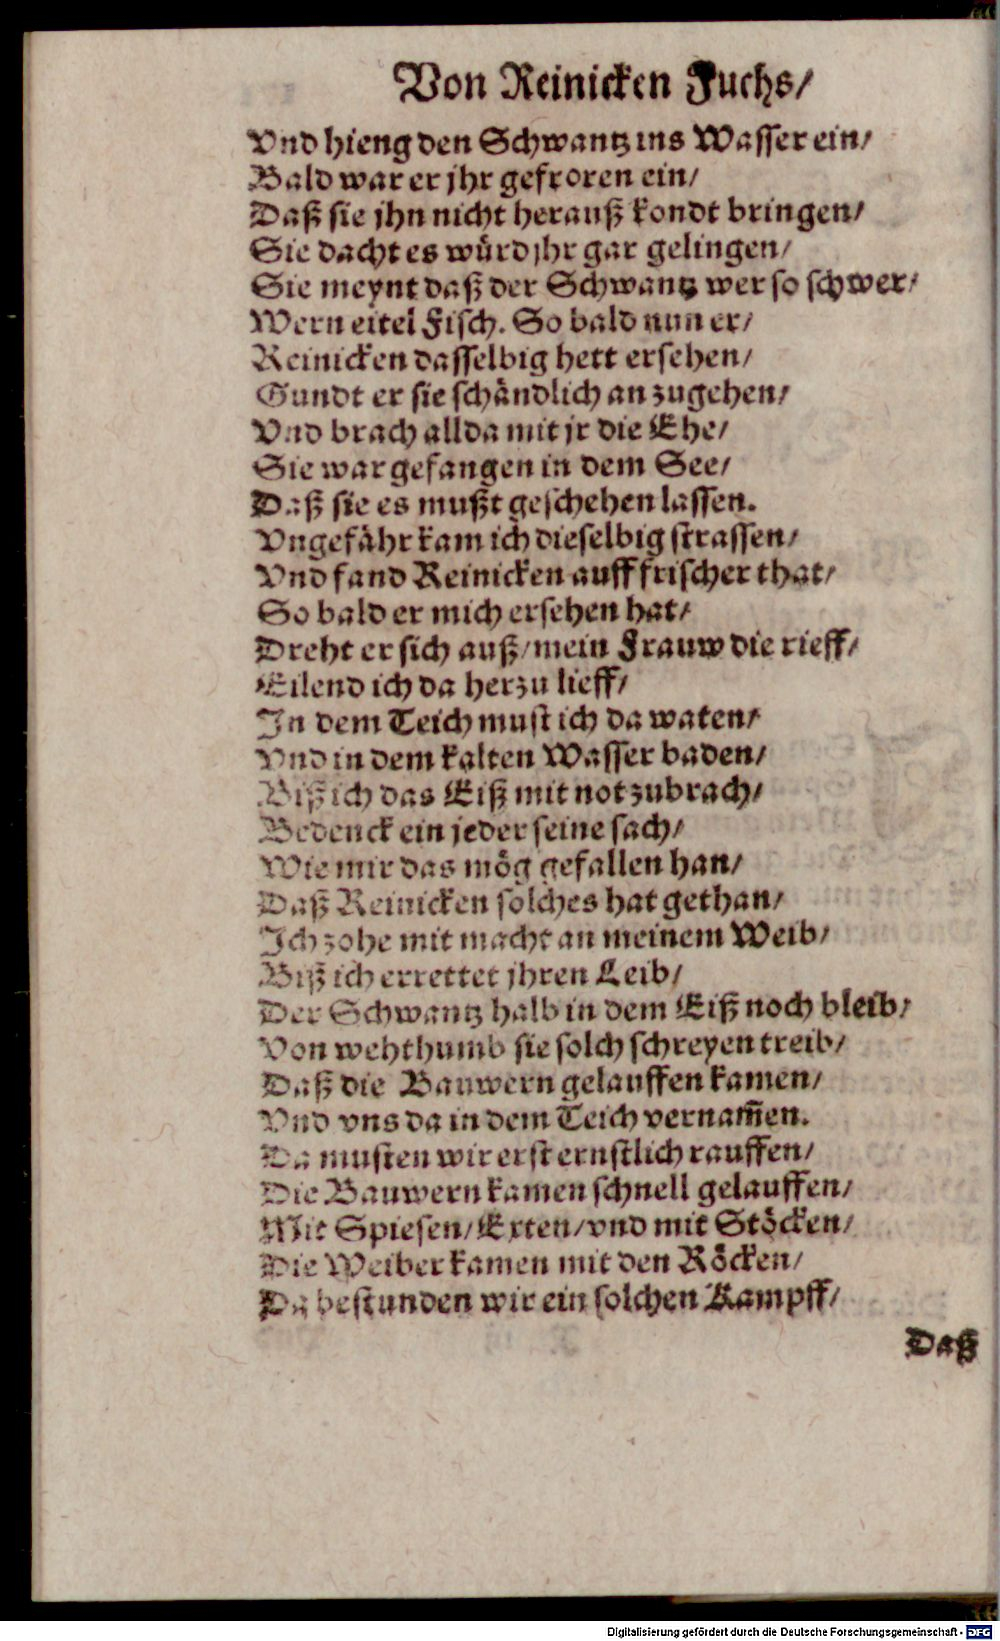 Von Reinicken Fuchs/
Vnd hieng den Schwantz ins Wasser ein/
Bald war er jhr gefroren ein/
Daß sie jhn nicht herauß kondt bringen/
Sie dacht es würd jhr gar gelingen/
Sie meynt daß der Schwantz wer so schwer/
Wern eitel Fisch. So bald nun er/
Reinicken dasselbig hett ersehen/
Gundt er sie schändlich an zugehen/
Vnd brach allda mit jr die Ehe/
Sie war gefangen in dem See/
Daß sie es mußt geschehen lassen.
Vngefähr kam ich dieselbig strassen/
Vnd fand Reinicken auff frischer that/
So bald er mich ersehen hat/
Dreht er sich auß/mein Frauw die rieff/
Eilend ich da herzu lieff/
In dem Teich must ich da waten/
Vnd in dem kalten Wasser baden/
Biß ich das Eiß mit not zubrach/
Bedenck ein jeder seine sach/
Wie mir das mög gefallen han/
Daß Reinicken solches hat gethan/
Ich zohe mit macht an meinem Weib/
Biß ich errettet jhren Leib/
Der Schwantz halb in dem Eiß noch bleib/
Von wehthumb sie solch schreyen treib/
Daß die Bauwern gelauffen kamen/
Vnd vns da in dem Teich vernam̃en.
Da musten wir erst ernstlich rauffen/
Die Bauwern kamen schnell gelauffen/
Mit Spiesen/Exten/vnd mit Stöcken/
Die Weiber kamen mit den Röcken/
Da bestunden wir ein solchen Kampff/
Daß
Digitalisierung gefördert durch die Deutsche Forschungsgemeinschaft - DFG